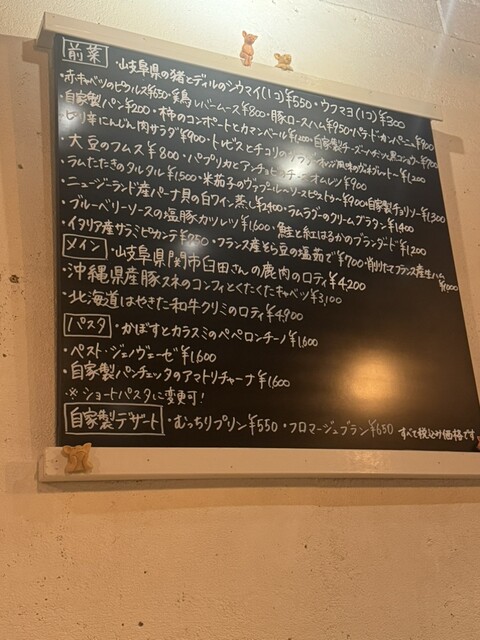 前菜 ・岐阜県の猪とディルのシウマイ(1コ)¥550・ウフマヨ(1コ)¥300
・赤キャベツのピクルス¥650・若鶏レバームース¥800・豚ロースハム¥950・パテドカンパーニュ¥900
・自家製パン¥200・柿のコンポートとカマンベール¥1,200・自家製チーズ
・ピリ辛にんじん肉サラダ¥900・トレビスとチョリの オレンジ風味 ¥1,200
・大豆のフムス¥800・パプリカとアンチョビのチーズオムレツ¥900
・ラムたたきのタルタル¥1,500・米茄子のヴァプール〜ソースピストゥ〜¥900・自家製チョリソー¥1,300
・ニュージーランド産パーナ貝の白ワイン蒸し¥2,400・ラムラグーのクリームグラタン¥1,400
・ブルーベリーソースの塩豚カツレツ¥1,600・鮭と紅はるかのブランダード¥1,200
・イタリア産サラミピカンテ¥750・フランス産そら豆の塩茹で¥700・削りたてフランス産生ハム
メイン ・岐阜県関市臼田さんの鹿肉のロティ¥4,200
・沖縄県産豚スネのコンフィとくたくたキャベツ¥3,100
・北海道はやきた和牛クリミのロティ¥4,900
パスタ ・かぼすとカラスミのペペロンチーノ¥1,600
・ペスト・ジェノヴェーゼ¥1,600
・自家製パンチェッタのアマトリチャーナ¥1,600
※ショートパスタに変更可!
自家製デザート ・むっちりプリン¥550・フロマージュブラン¥650 すべて税込み価格です